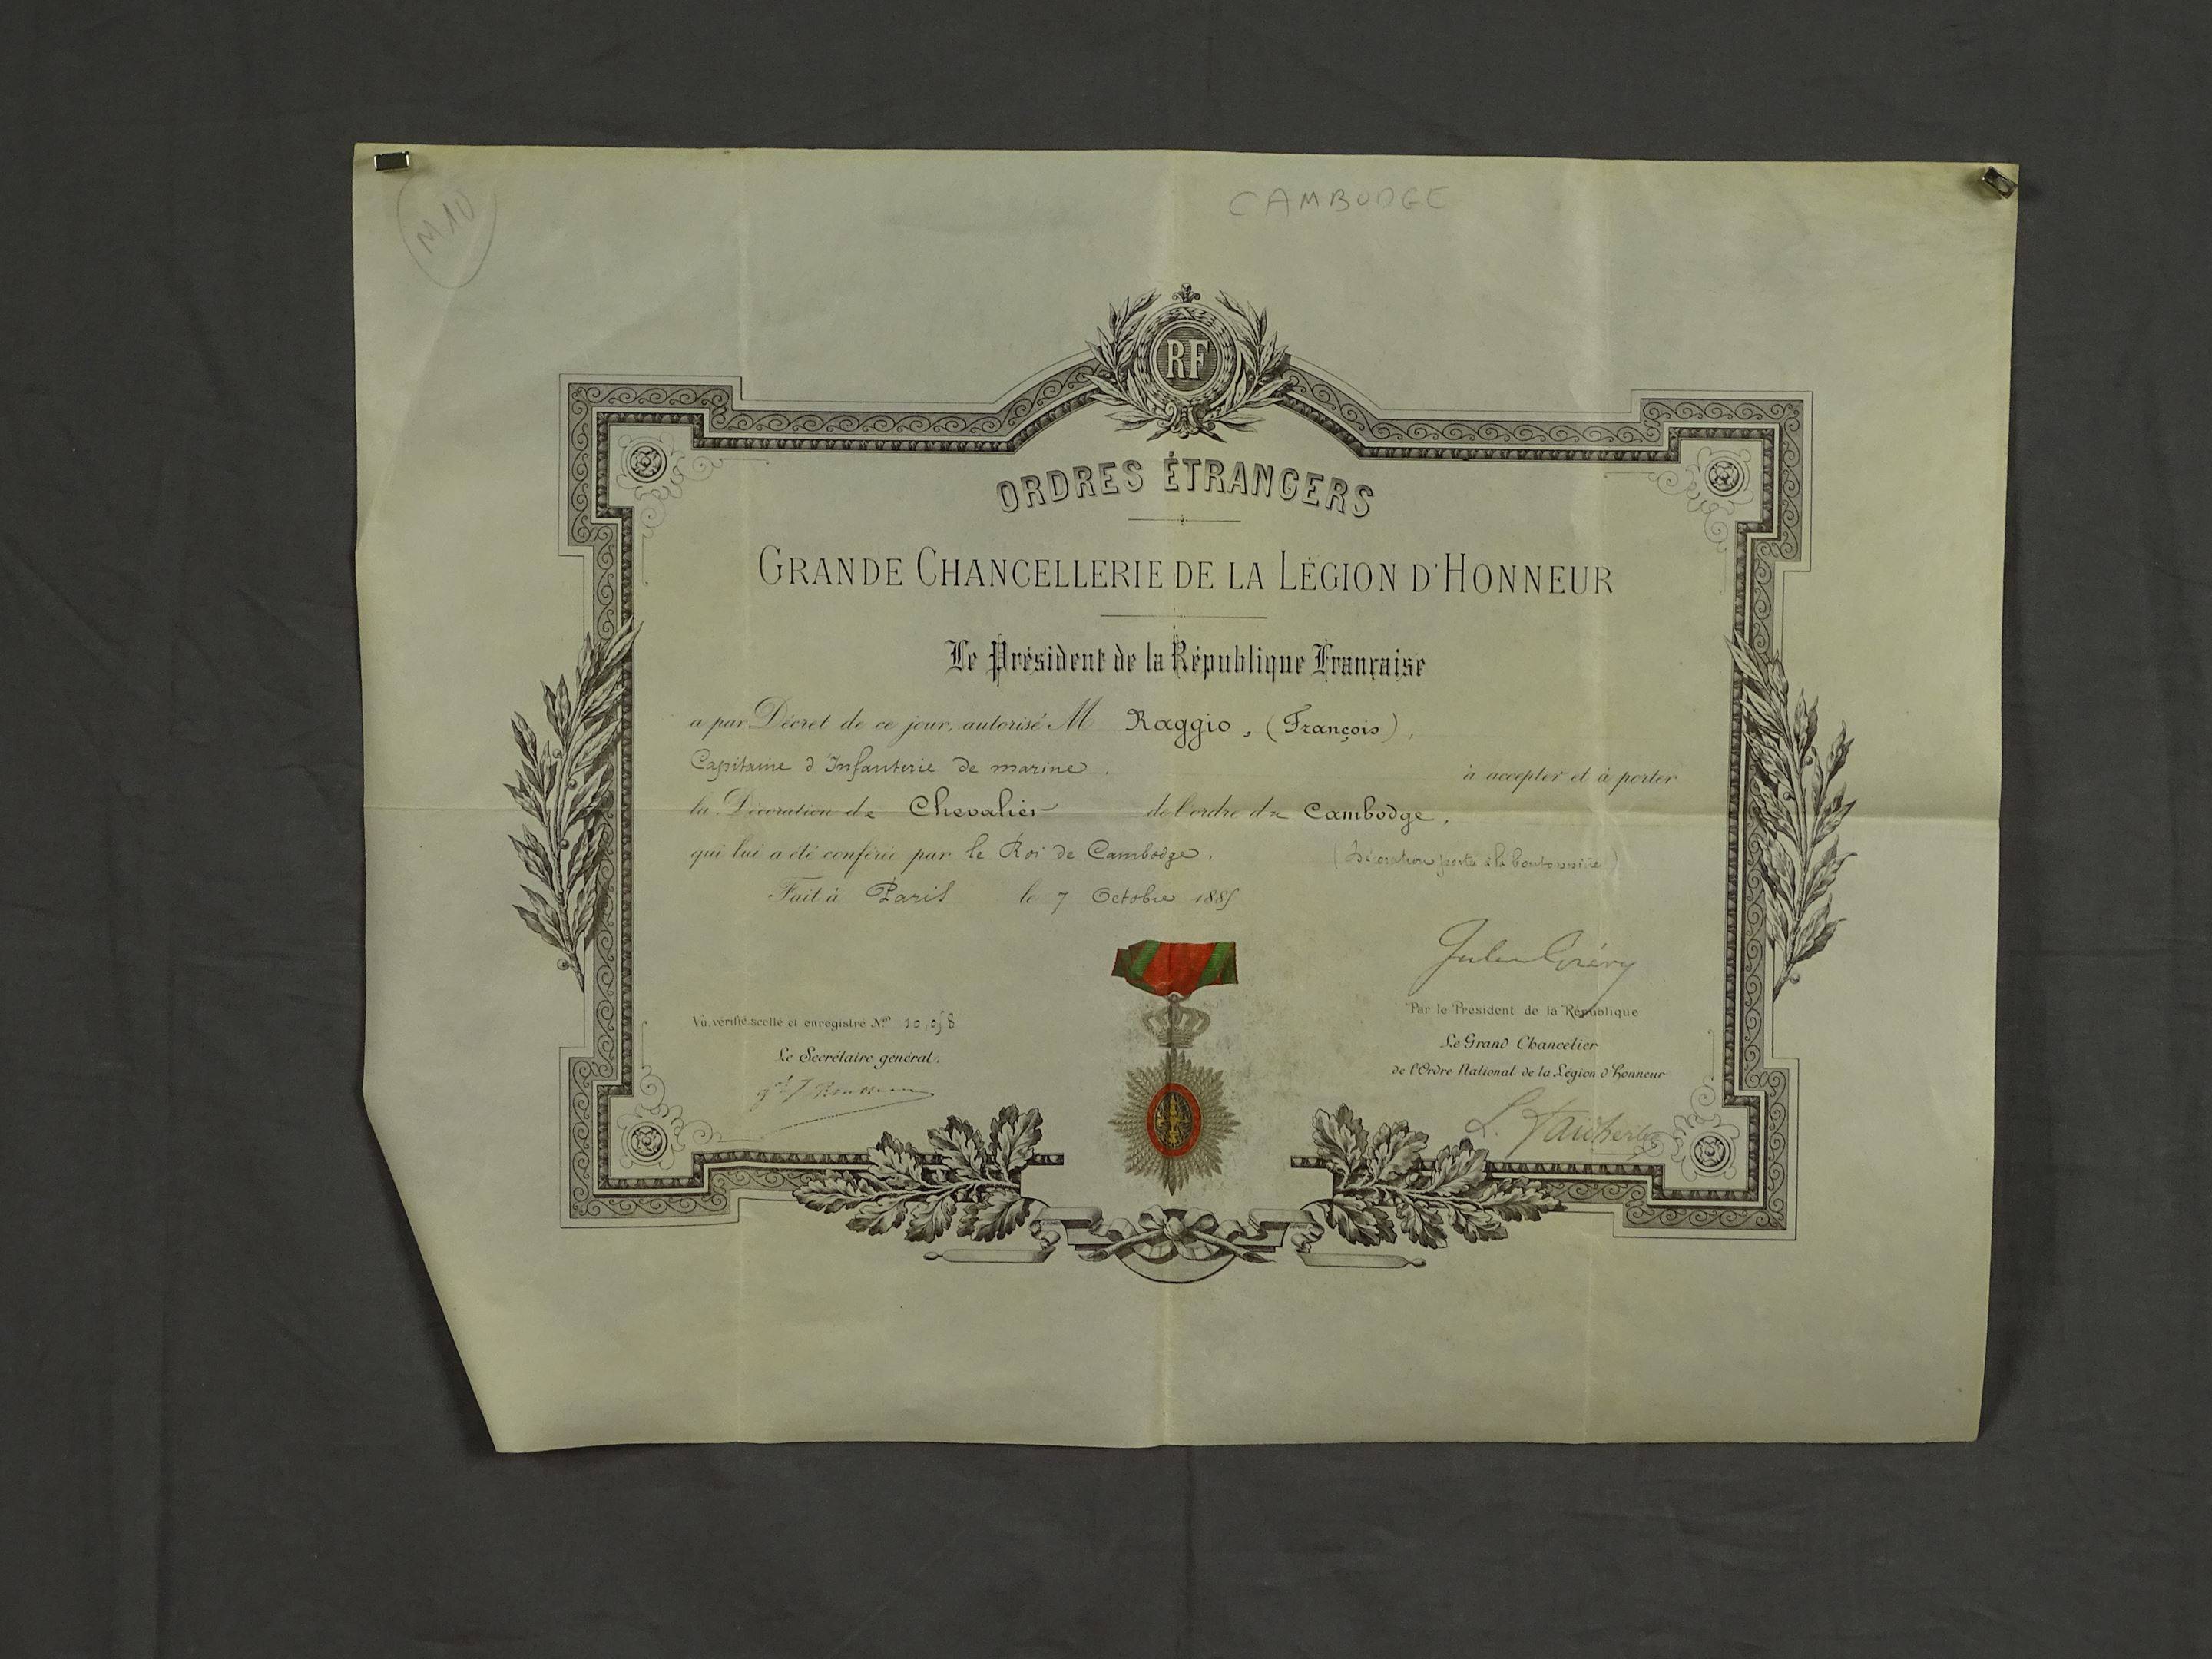 M10
CAMBODGE
RF
ORDRES ÉTRANGERS
GRANDE CHANCELLERIE DE LA LÉGION D'HONNEUR
Le Président de la République Française
a par Décret de ce jour, autorisé M Raggio, (François),
Capitaine d'Infanterie de marine. à accepter et à porter
la Décoration de Chevalier de l'ordre du Cambodge,
qui lui a été conférée par le Roi de Cambodge. (Décoration portée à la boutonnière)
Fait à Paris le 7 Octobre 1885
Jules Grévy
Par le Président de la République
Vu, vérifié, scellé et enregistré No 10,058
Le Grand Chancelier
Le Secrétaire général.
de l'Ordre National de la Légion d'honneur
gal Rousseau
L. Faidherbe